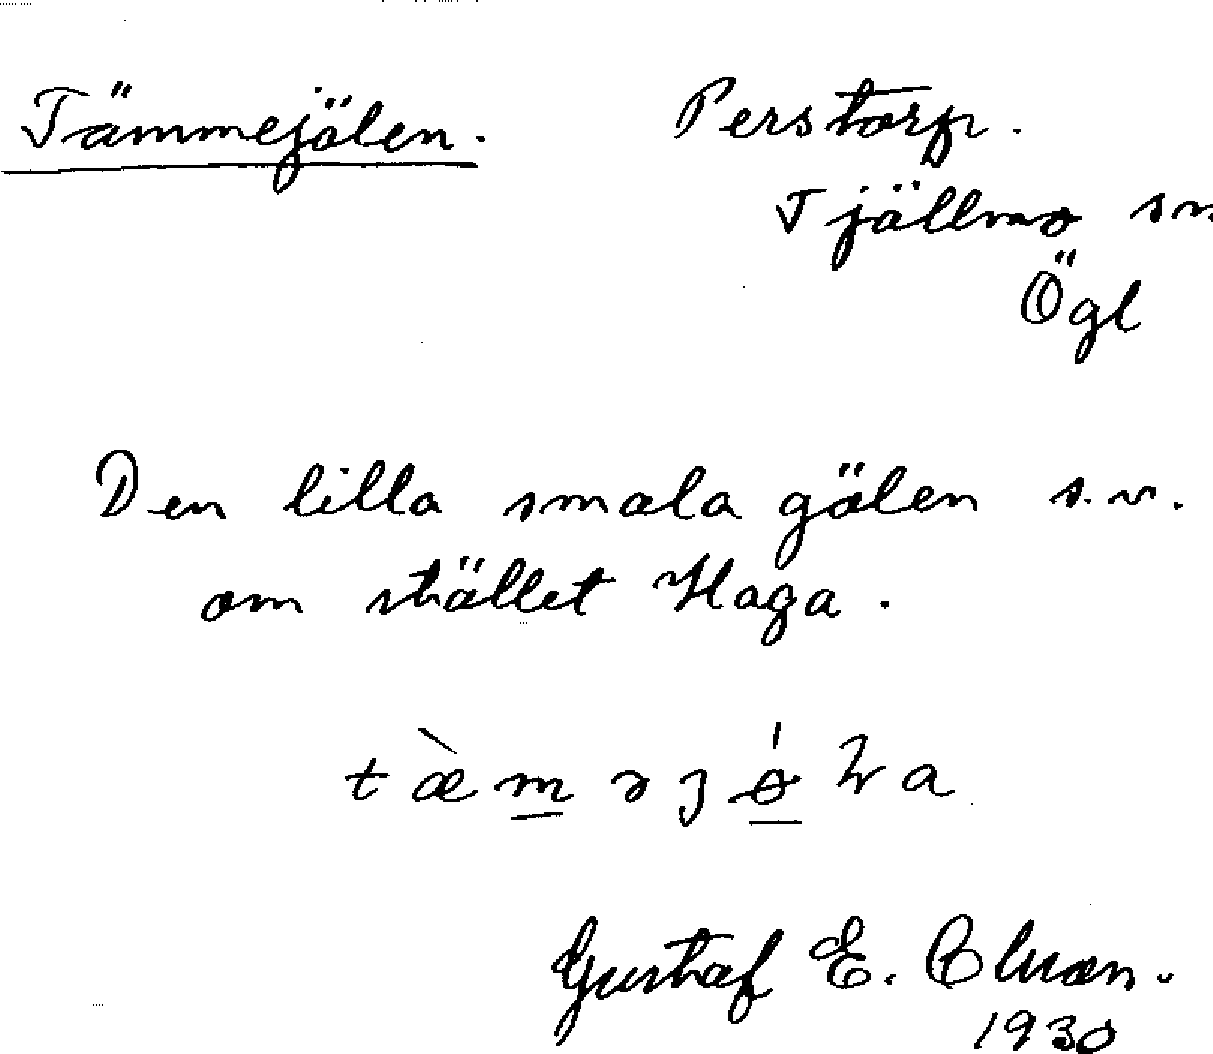 Tämmejölen. Perstorp.
Tjällmo sn
Ögl
Den lilla smala gölen s.v.
om stället Haga.
Gustaf E.
1930